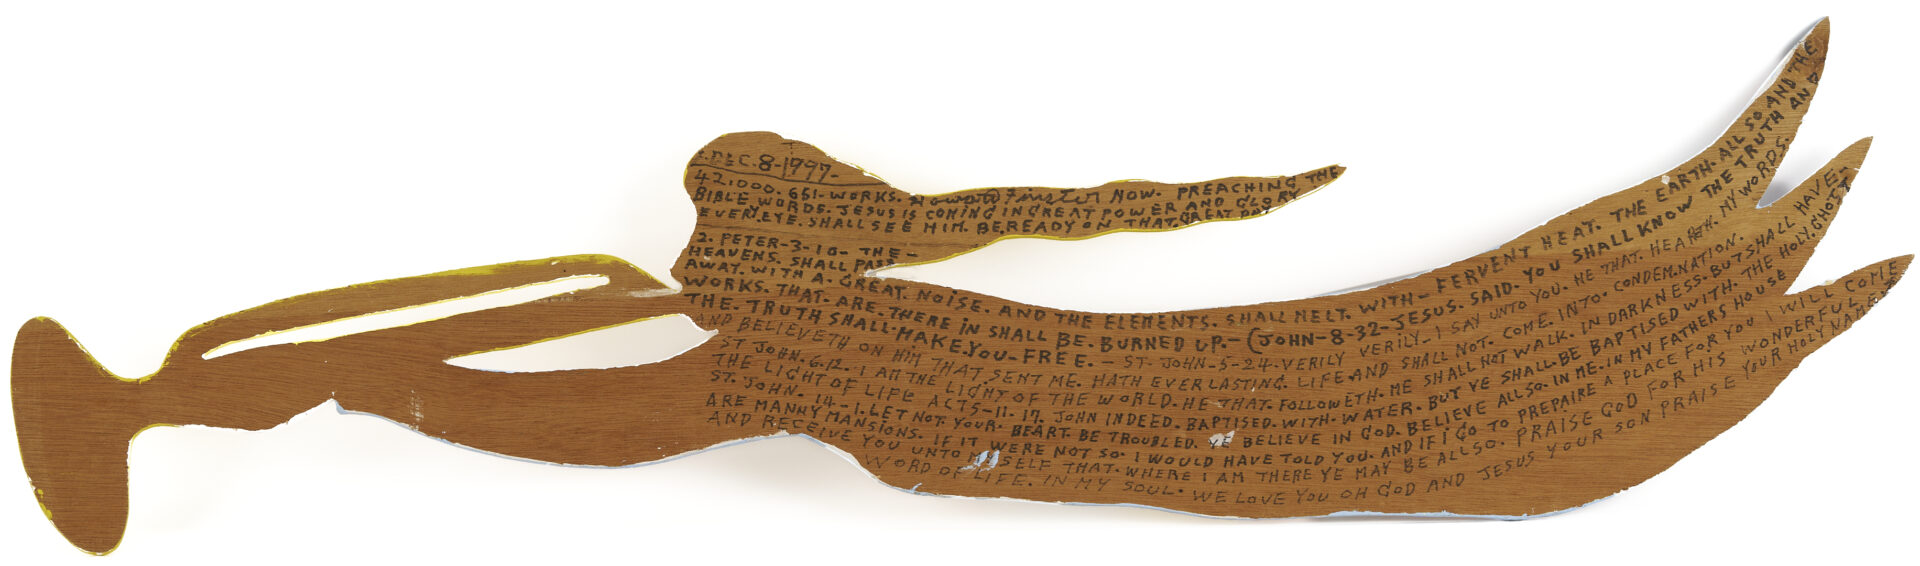 .DEC.8-1997-
42,000.661-WORKS. HOWARD FINSTER NOW. PREACHING THE
BIBLE WORDS. JESUS IS COMING IN GREAT POWER AND GLORY
EVERY.EYE.SHALL SEE HIM. BE.READY ON THAT.GREAT DAY
2. PETER-3-10- THE-
HEAVENS. SHALL PASS
AWAY. WITH A. GREAT. NOISE. AND THE ELEMENTS. SHALL MELT. WITH- FERVENT HEAT. THE EARTH. ALL SO AND THE
WORKS. THAT. ARE. THERE IN SHALL BE. BURNED UP.- (JOHN-8-32-JESUS. SAID. YOU SHALL KNOW THE TRUTH AND
THE. TRUTH SHALL. MAKE. YOU-FREE. - ST. JOHN-5-24-VERILY VERILY-I SAY UNTO YOU. HE THAT. HEARTH. MY WORDS.
AND BELIEVETH ON HIM THAT. SENT ME. HATH EVERLASTING. LIFE. AND SHALL NOT. COME. INTO. CONDEM.NATION.
ST JOHN. 6.12. I AM THE LIGHT OF THE WORLD. HE THAT. FOLLOWETH. ME SHALL NOT WALK. IN DARKNESS. BUT SHALL HAVE-
THE LIGHT OF LIFE ACTS-11.17. JOHN INDEED. BAPTISED. WITH. WATER. BUT YE SHALL. BE BAPTISED WITH. THE HOLY. GHOST
ST. JOHN. 14-1. LET NOT YOUR. BEART. BE TROUBLED. YE BELIEVE IN GOD. BELIEVE ALL SO. IN ME. IN MY FATHERS HOUSE
ARE MANNY MANSIONS. IF IT WERE NOT SO. I WOULD HAVE TOLD YOU. AND IF I GO TO PREPAIRE A PLACE FOR YOU I WILL COME
AND RECEIVE YOU UNTO MYSELF THAT. WHERE I AM THERE YE MAY BE ALL SO. PRAISE GOD FOR HIS WONDERFUL
WORD OF LIFE. IN MY SOUL. WE LOVE YOU OH GOD AND JESUS YOUR SON PRAISE YOUR HOLY NAMES